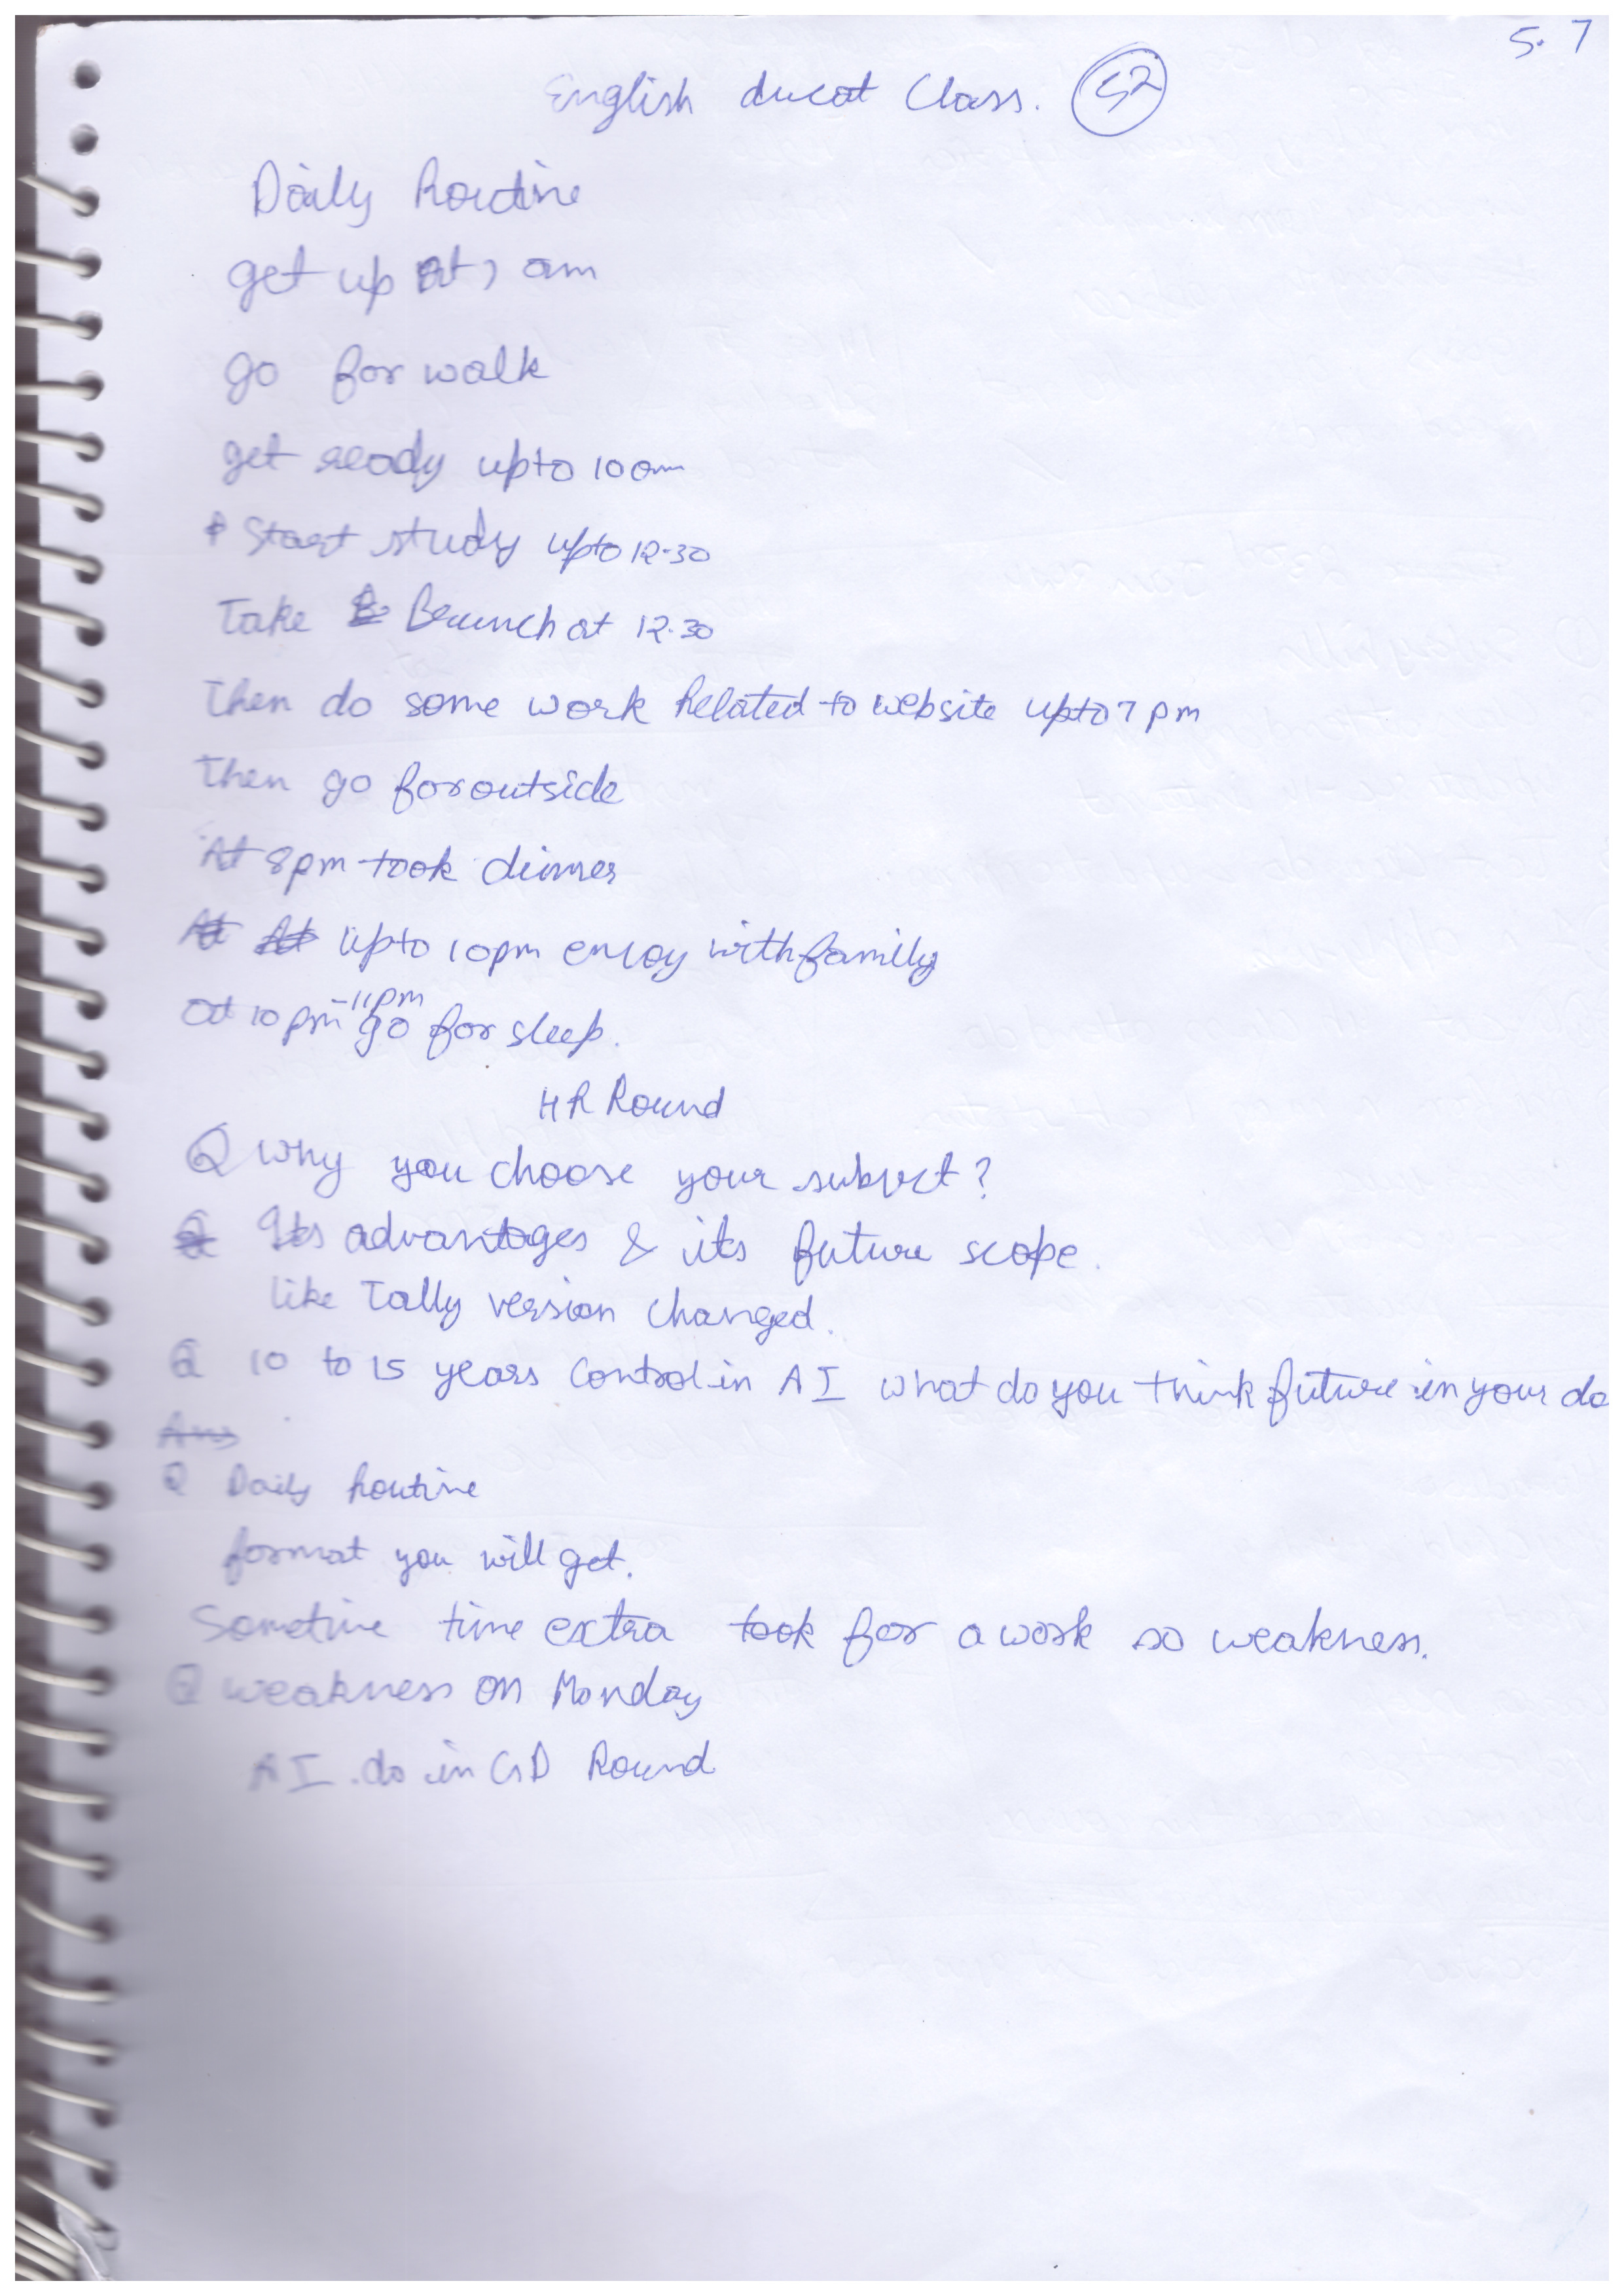 5.7
English ducat Class. 52
Daily Routine
get up at 7 am
go for walk
get ready upto 10 am
Start study upto 12.30
Take Brunch at 12.30
Then do some work Related to website upto 7 pm
Then go for outside
At 8pm took dinner
upto 10pm enjoy with family
at 10 pm -11pm go for sleep.
HR Round
Q Why you choose your subject?
Its advantages & its future scope.
like Tally version changed.
Q 10 to 15 years Control in AI what do you think future in your do
Ans
Q Daily Routine
format you will get.
Sometime time extra took for a work so weakness.
Q weakness on Monday
AI . do in GD Round